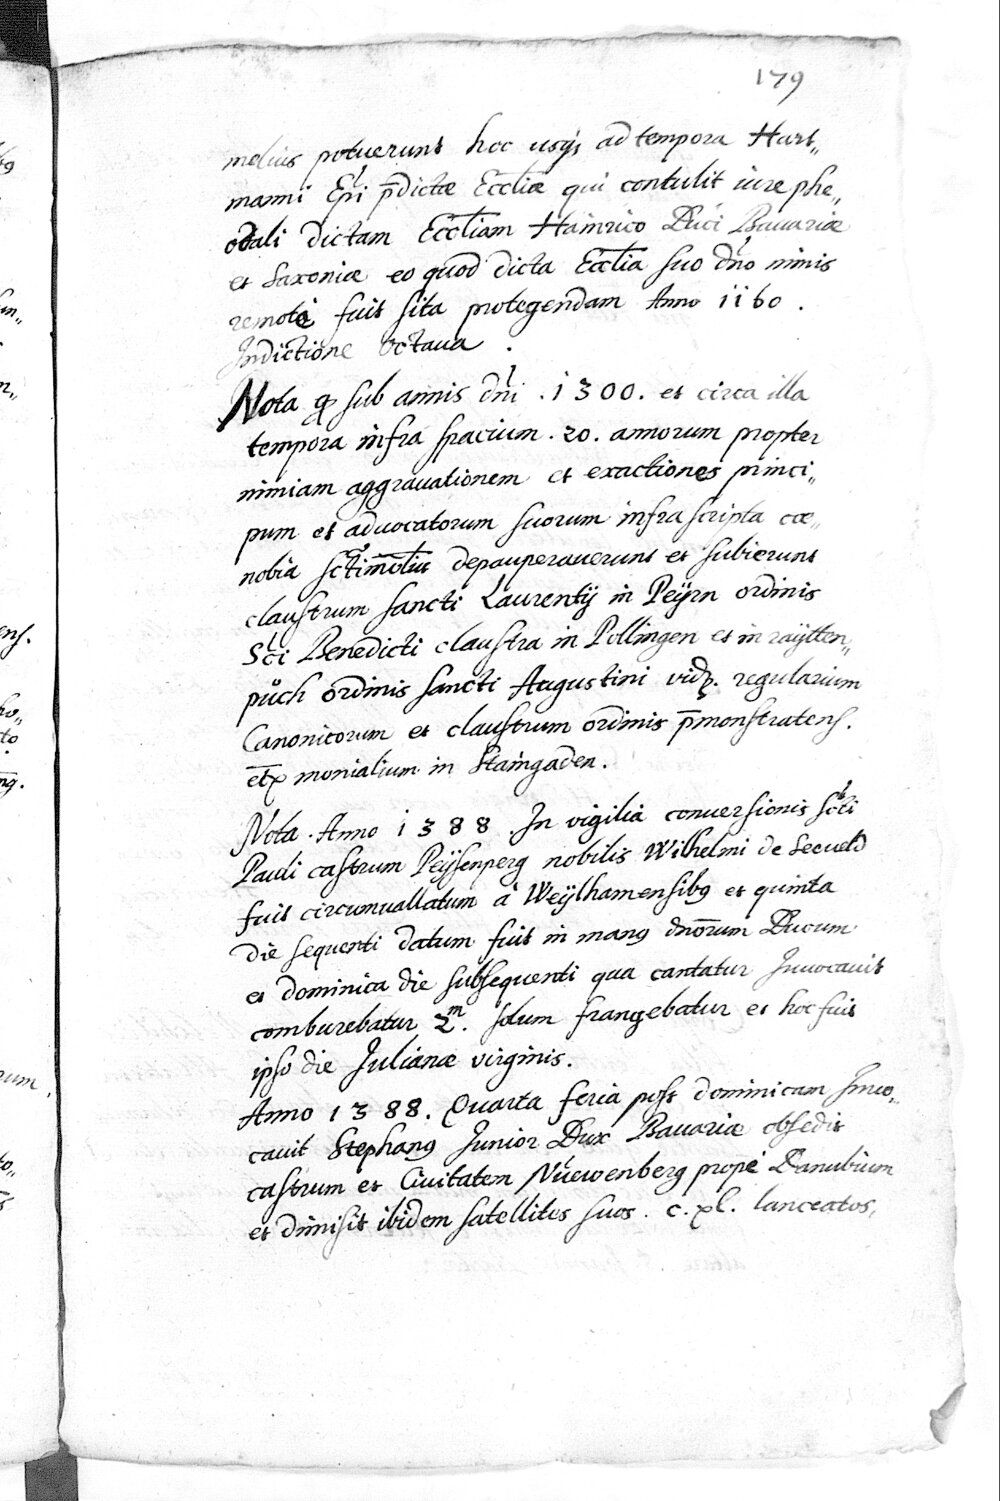 179
melius potuerunt hoc usq; ad tempora Hart„
manni Epi p̄dictæ Eccliæ qui contulit iure phe„
odali dictam Eccliam Hainrico Duci Bauariæ
et Saxoniæ eo quod dicta Ecclia suo dño nimis
remotè fuit sita protegendam Anno 1160.
Indictione octaua.
Nota ꝙ sub annis dñi .1300. et circa illa
tempora infra spacium .20. annorum propter
nimiam aggrauationem et exactiones princi„
pum et aduocatorum suorum infra scripta coe„
nobia depauperauerunt et subierunt
claustrum sancti Laurentij in Peÿrn ordinis
Scti Benedicti claustra in Pollingen et in raÿtten„
půch ordinis sancti Augustini vidz. regularium
Canonicorum et claustrum ordinis p̄monstratens.
monialium in Staingaden.
Nota. Anno 1388. In vigilia conuersionis Scti
Pauli castrum Peÿsenperg nobilis Wilhelmi de Seeueld
fuit circumuallatum à Weÿlhamensibꝯ et quinta
die sequenti datum fuit in manꝯ dnōrum Ducum
et dominica die subsequenti qua cantatur Inuocauit
comburebatur 2.m solum frangebatur et hoc fuit
ipso die Julianæ virginis.
Anno 1388. Quarta feria post dominicam Inuo„
cauit Stephanꝯ Junior Dux Bauariæ obsedit
castrum et Ciuitatem Nüewenberg propè Danubium
et dimisit ibidem satellites suos. c. xl. lanceatos,